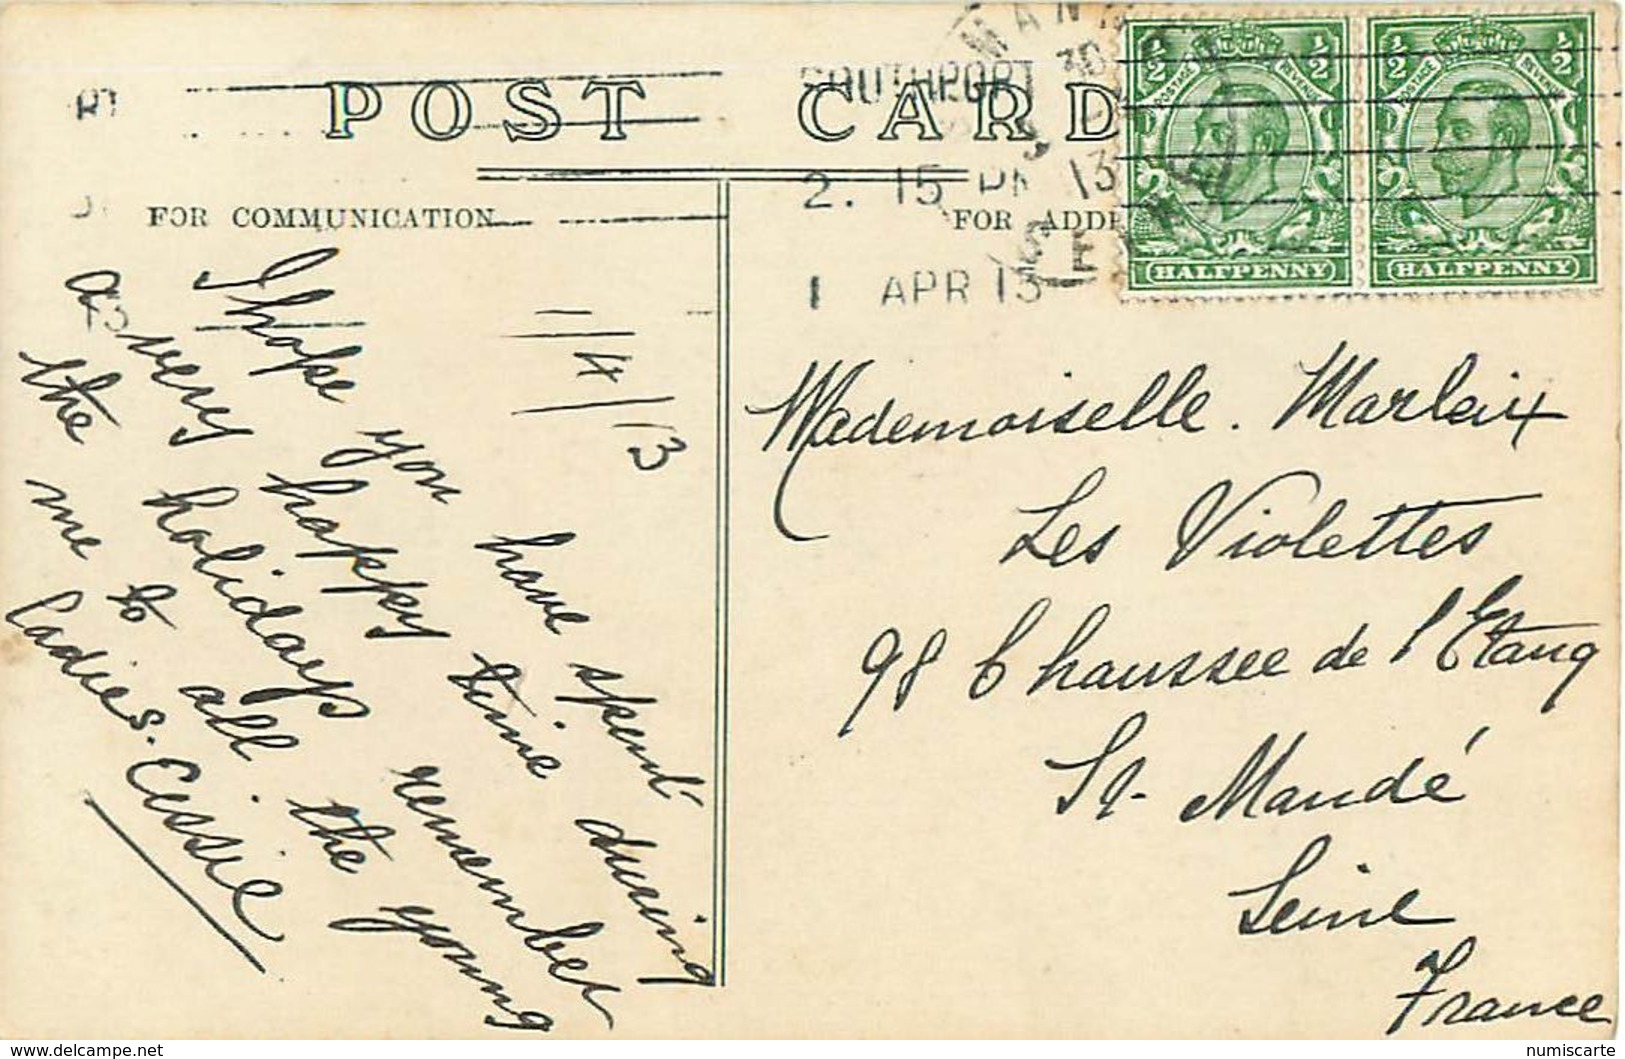 POST CARD
FOR COMMUNICATION
SOUTHPORT
2. 15 PM
1 APR 13
½ ½
POSTAGE REVENUE
HALFPENNY
½ ½
POSTAGE REVENUE
HALFPENNY
1/4/13
I hope you have spent
a very happy time during
the holidays remember
me to all the young
ladies. Cissie
Mademoiselle. Marleix
Les Violettes
98 Chaussee de l'Etang
St. Mandé
Seine
France
www.delcampe.net
numiscarte